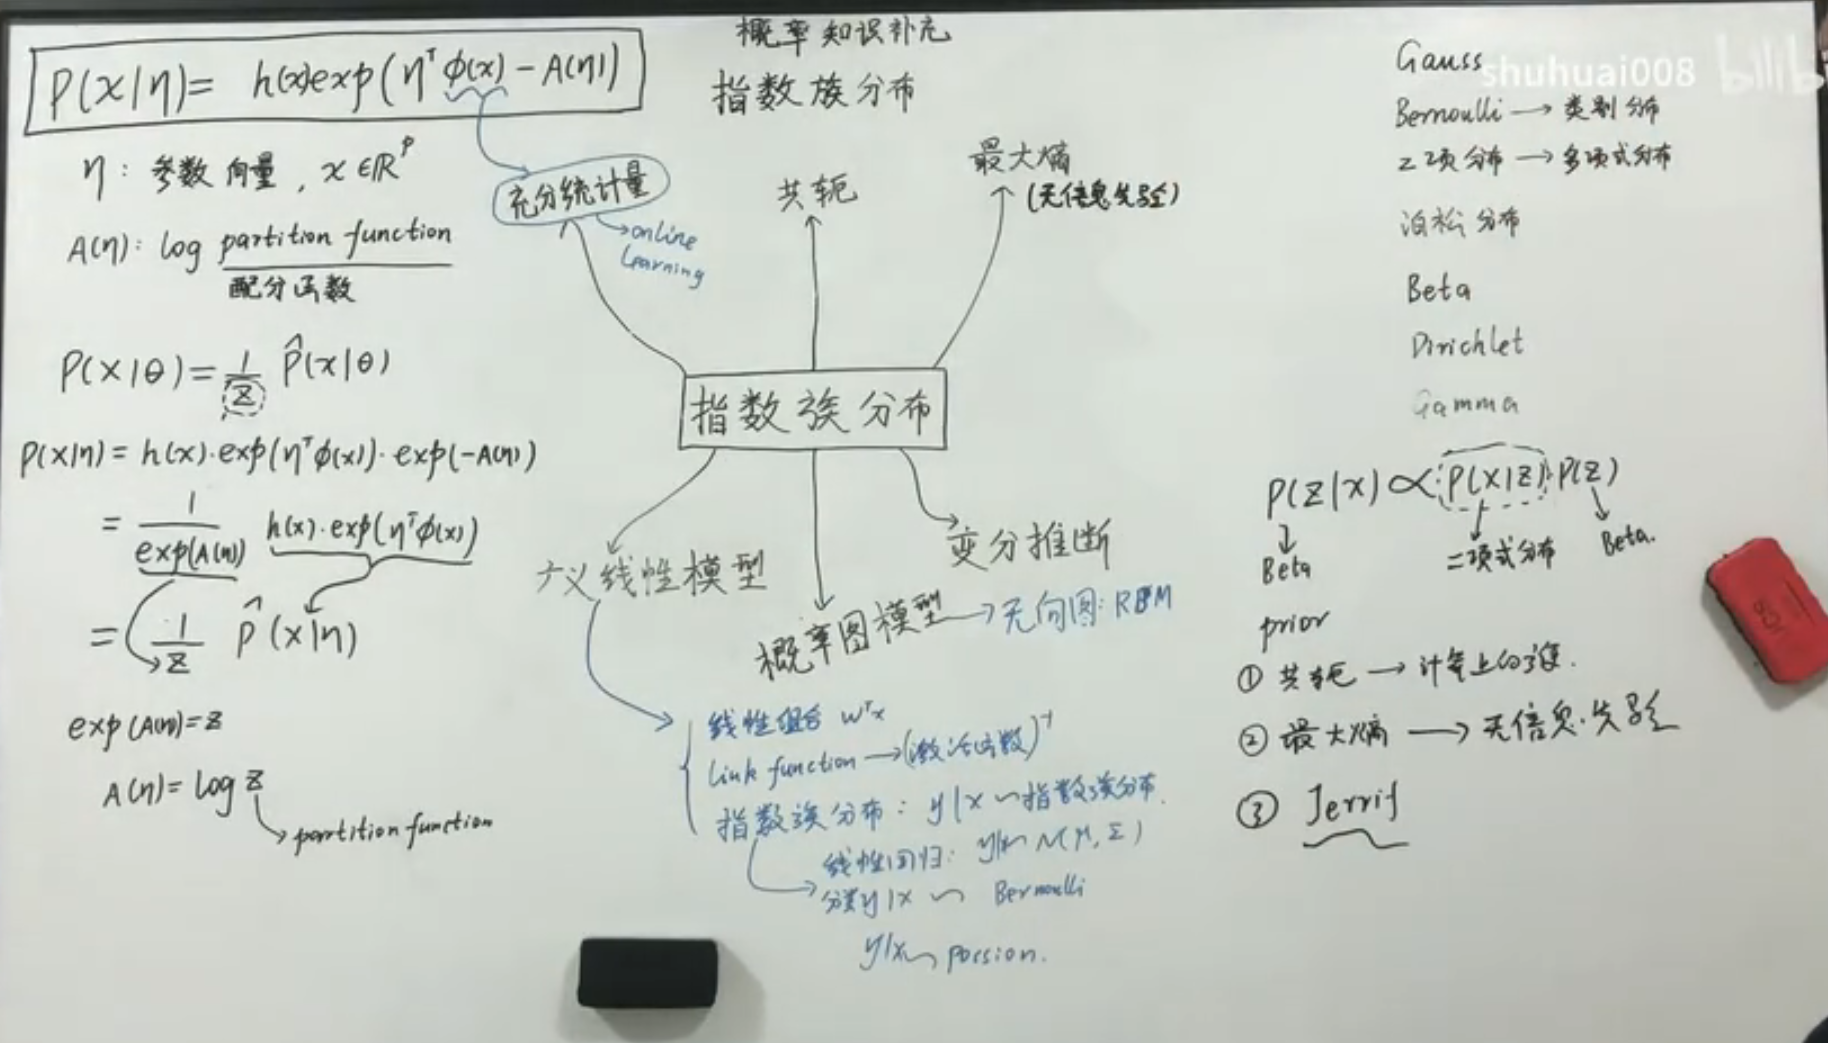 概率知识补充
指数族分布
P(x|η)= h(x)exp(ηᵀφ(x)-A(η))
η: 参数向量, x∈ℝᵖ
A(η): log partition function
配分函数
P(x|θ)=1/z P̂(x|θ)
P(x|η)=h(x)·exp(ηᵀφ(x))·exp(-A(η))
=1/exp(A(η)) h(x)·exp(ηᵀφ(x))
=1/z P̂(x|η)
exp(A(η))=z
A(η)=log z
→partition function
充分统计量
→online
Learning
共轭
最大熵
(无信息先验)
指数族分布
广义线性模型
概率图模型→无向图: RBM
变分推断
线性组合 wᵀx
Link function→(激活函数)⁻¹
指数族分布: y|x～指数族分布.
线性回归: y|x～N(μ,Σ)
分类y|x～ Bernoulli
y|x～ possion.
Gauss
shuhuai008 bilibili
Bernoulli→类别分布
二项分布→多项式分布
泊松分布
Beta
Dirichlet
Gamma
P(z|x)∝P(x|z)·P(z)
Beta 二项式分布 Beta.
prior
① 共轭→计算上的方便.
② 最大熵→无信息·先验
③ Jerrif